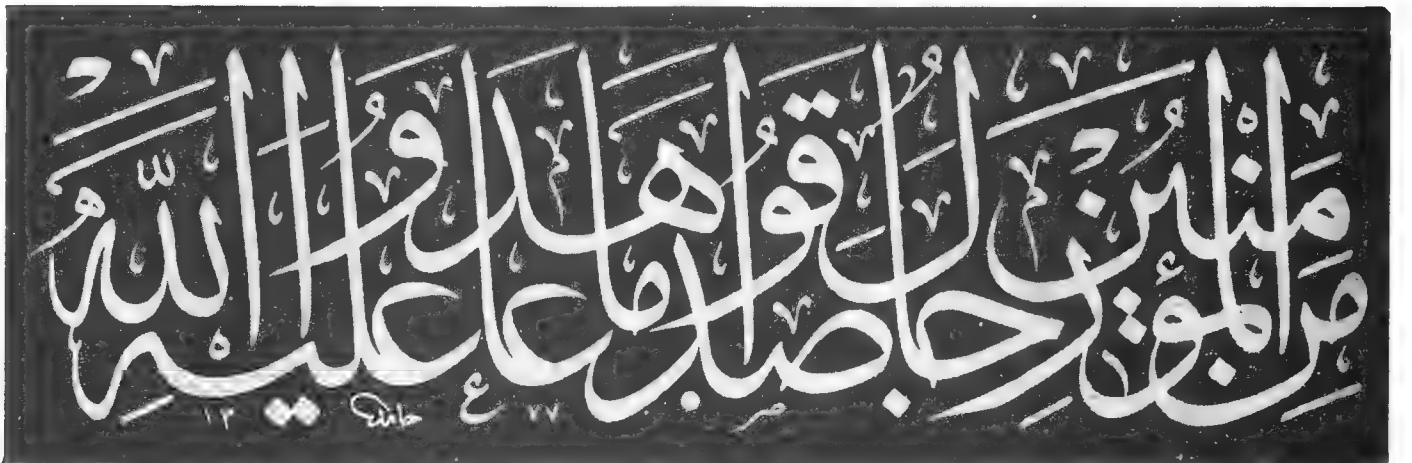 مِنَ الْمُؤْمِنِينَ رِجَالٌ صَدَقُوا مَا عَاهَدُوا اللّٰهَ عَلَيْهِ
حامد
١٣٧٧